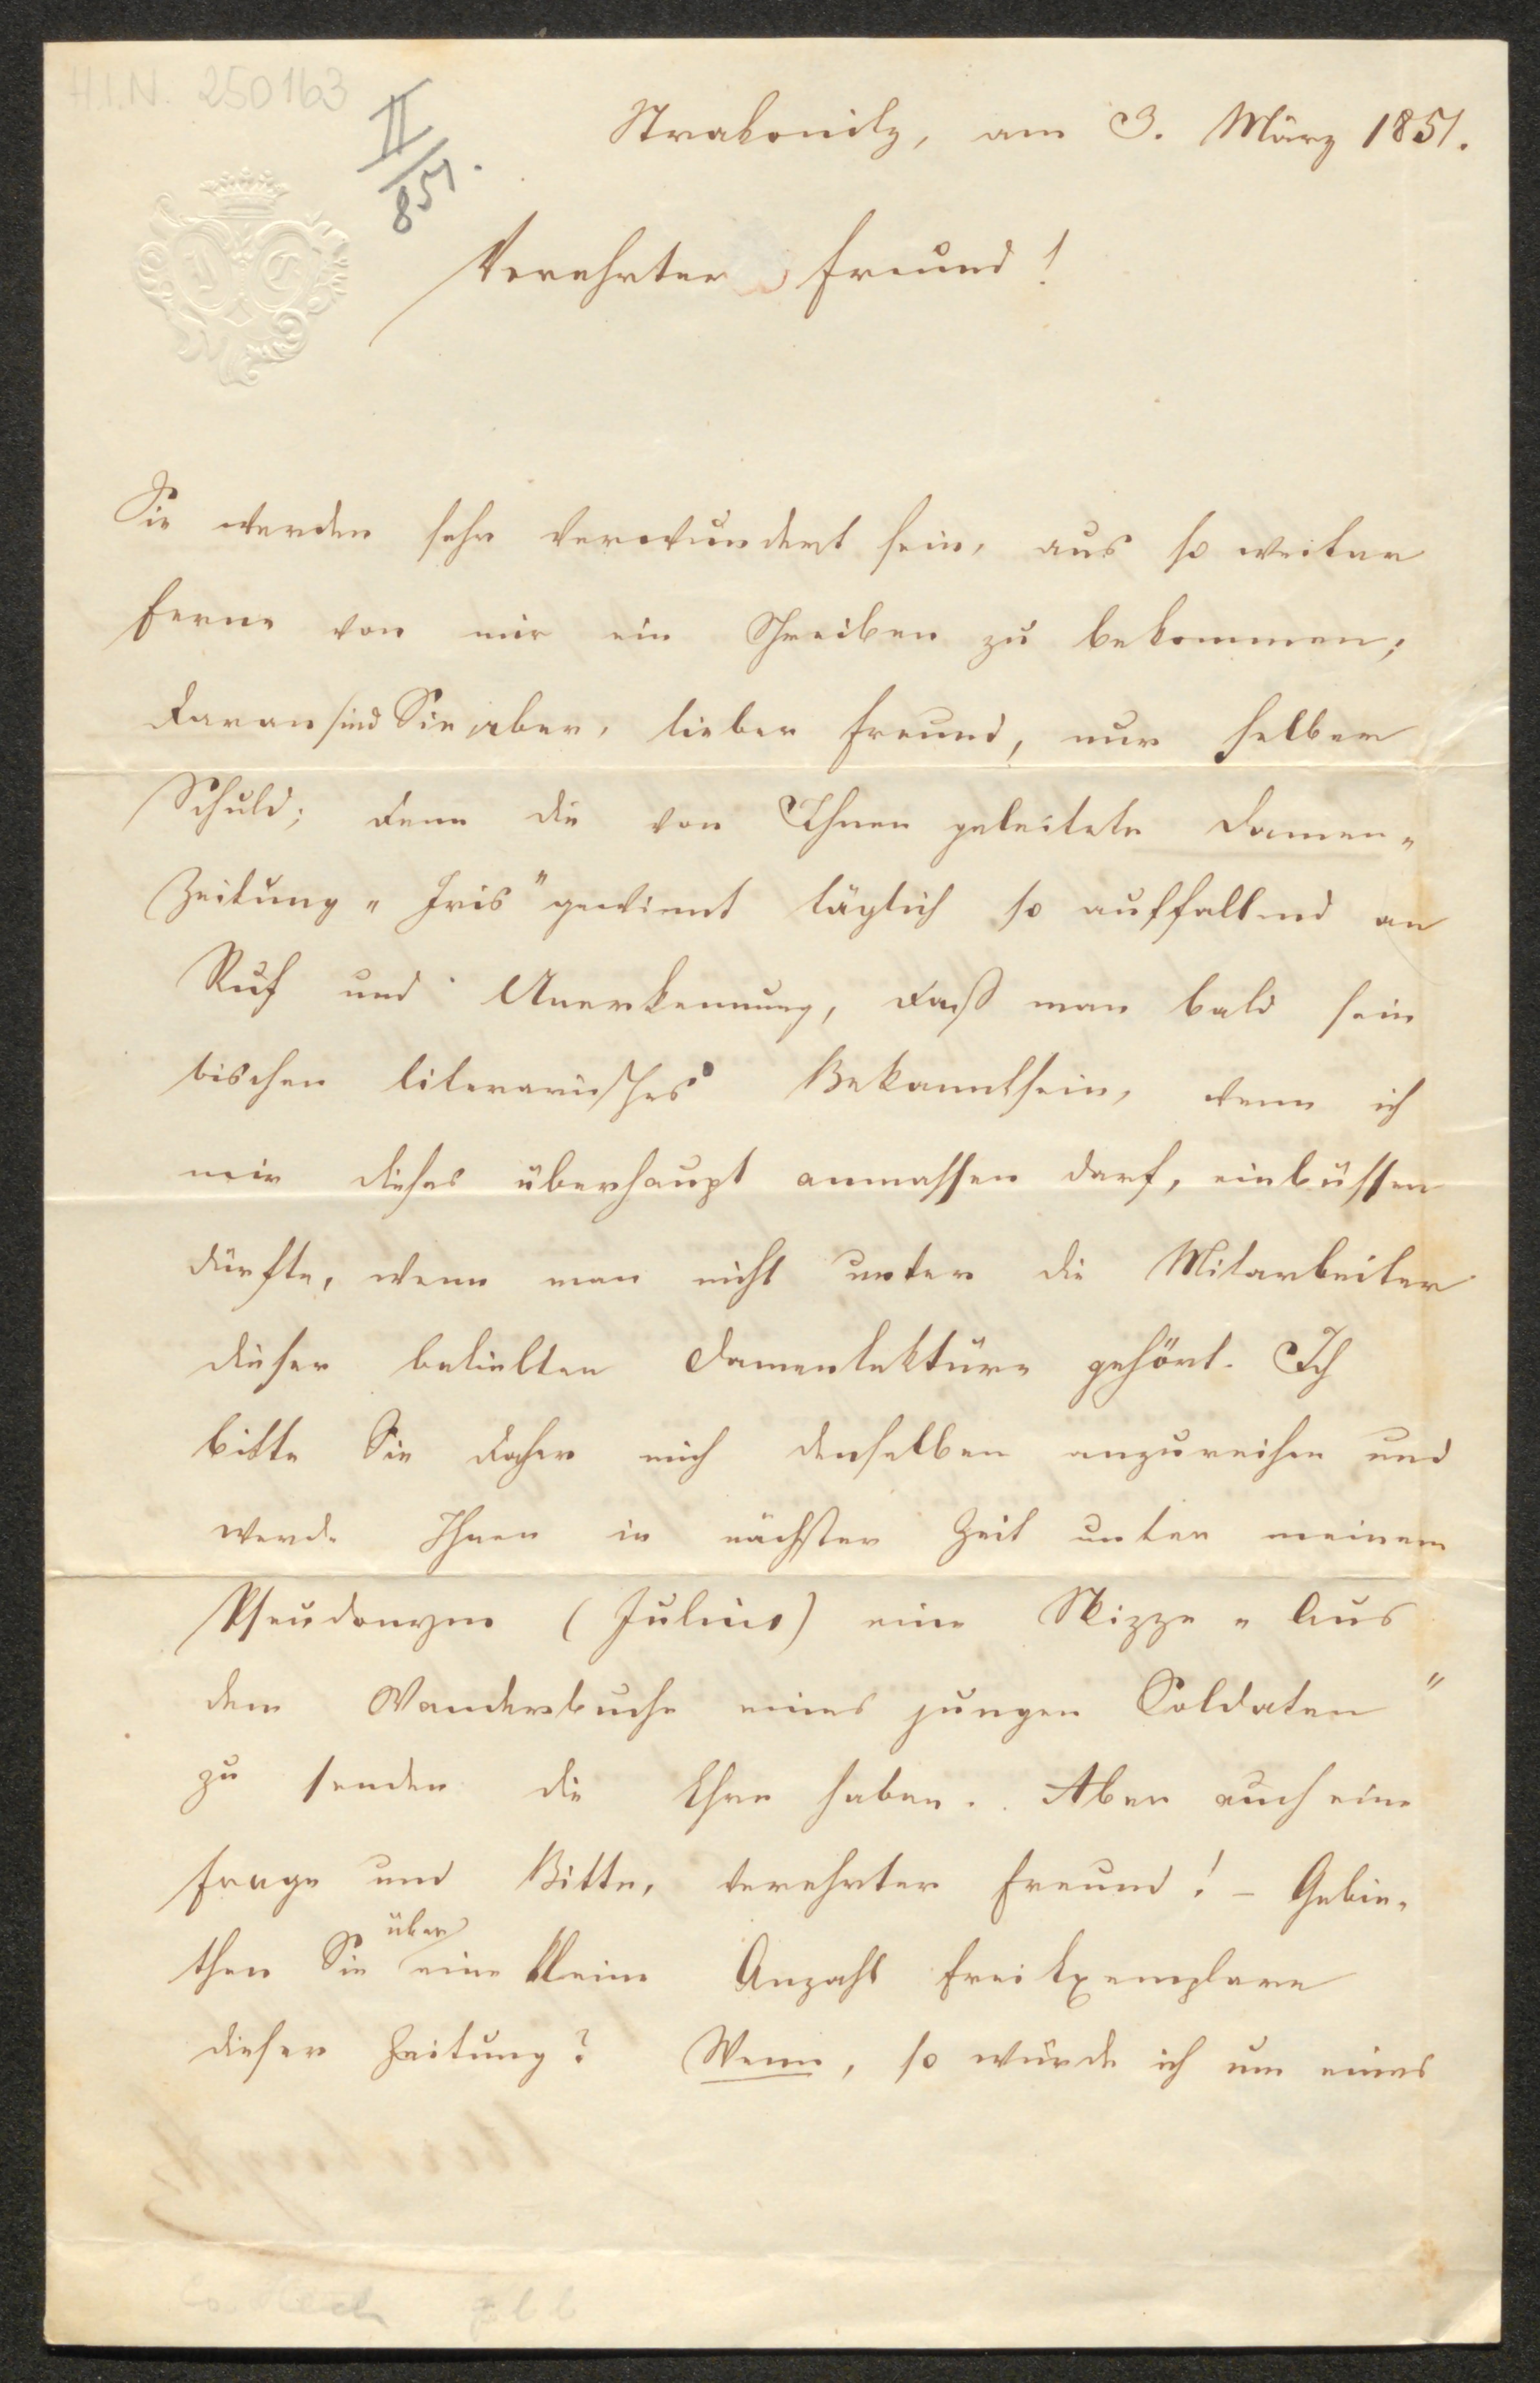 H.I.N. 250163
II/851.
Strakonitz, am 3. März 1851.
Verehrter Freund!
Sie werden sehr verwundert sein, aus so weiter
Ferne von mir ein Schreiben zu bekommen;
daran sind Sie aber, lieber Freund, nur selber
Schuld; denn die von Ihnen geleitete Damen-
Zeitung „Iris" gewinnt täglich so auffallend an
Ruf und Anerkennung, daß man bald sein
bischen literarisches Bekanntsein, wenn ich
mir dieses überhaupt anmassen darf, einbüssen
dürfte, wenn man nicht unter die Mitarbeiter
dieser beliebten Damenlektüre gehört. Ich
bitte Sie daher mich denselben anzureihen und
werde Ihnen in nächster Zeit unter meinem
Pseudonym (Julius) eine Skizze „Aus
dem Wanderbuche eines jungen Soldaten"
zu senden die Ehre haben. Aber auch eine
Frage und Bitte, verehrter Freund! – Gebie-
then Sie über eine kleine Anzahl Frei Exemplare
dieser Zeitung? Wenn, so würde ich um eines